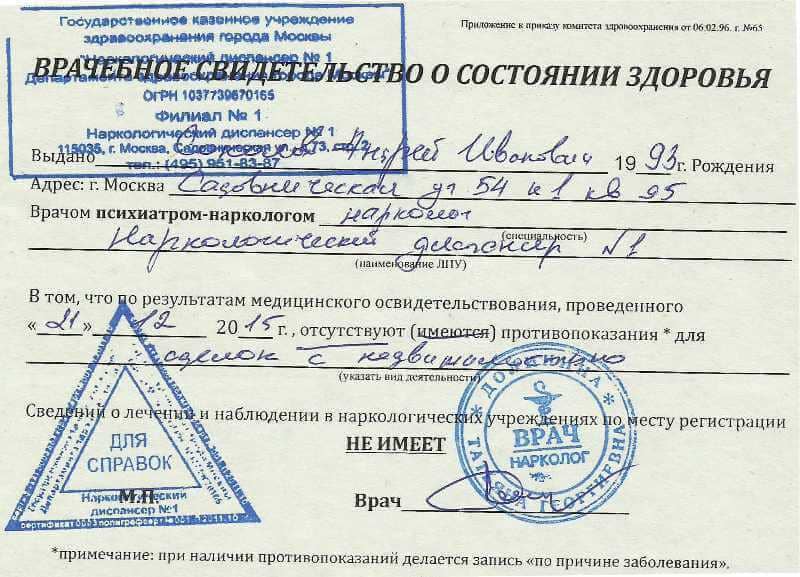 Государственное казенное учреждение
здравоохранения города Москвы
"Наркологический диспансер № 1
Департамента здравоохранения города Москвы"
ОГРН 1037739670165
Филиал № 1
Наркологический диспансер № 1
115035, г. Москва, Садовническая ул., д.73, стр.2
тел.: (495) 951-83-87
Приложение к приказу комитета здравоохранения от 06.02.96. г. №65
ВРАЧЕБНОЕ СВИДЕТЕЛЬСТВО О СОСТОЯНИИ ЗДОРОВЬЯ
Выдано Андрей Иванович 1993г. Рождения
Адрес: г. Москва Садовническая ул 54 к1 кв 95
Врачом психиатром-наркологом нарколог
(специальность)
Наркологический диспансер №1
(наименование ЛПУ)
В том, что по результатам медицинского освидетельствования, проведенного
«21» 12 2015г., отсутствуют (имеются) противопоказания * для
сделок с недвижимостью
(указать вид деятельности)
Сведений о лечении и наблюдении в наркологических учреждениях по месту регистрации
НЕ ИМЕЕТ
М.П.
Врач
ДЛЯ
СПРАВОК
Наркологический
диспансер №1
ВРАЧ
НАРКОЛОГ
ГЕОРГИЕВНА
*примечание: при наличии противопоказаний делается запись «по причине заболевания».